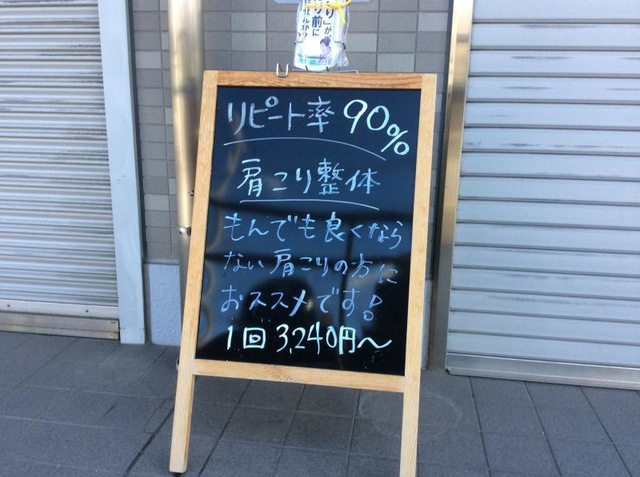 リピート率 90%
肩こり整体
もんでも良くなら
ない肩こりの方に
おススメです!
1回 3,240円～